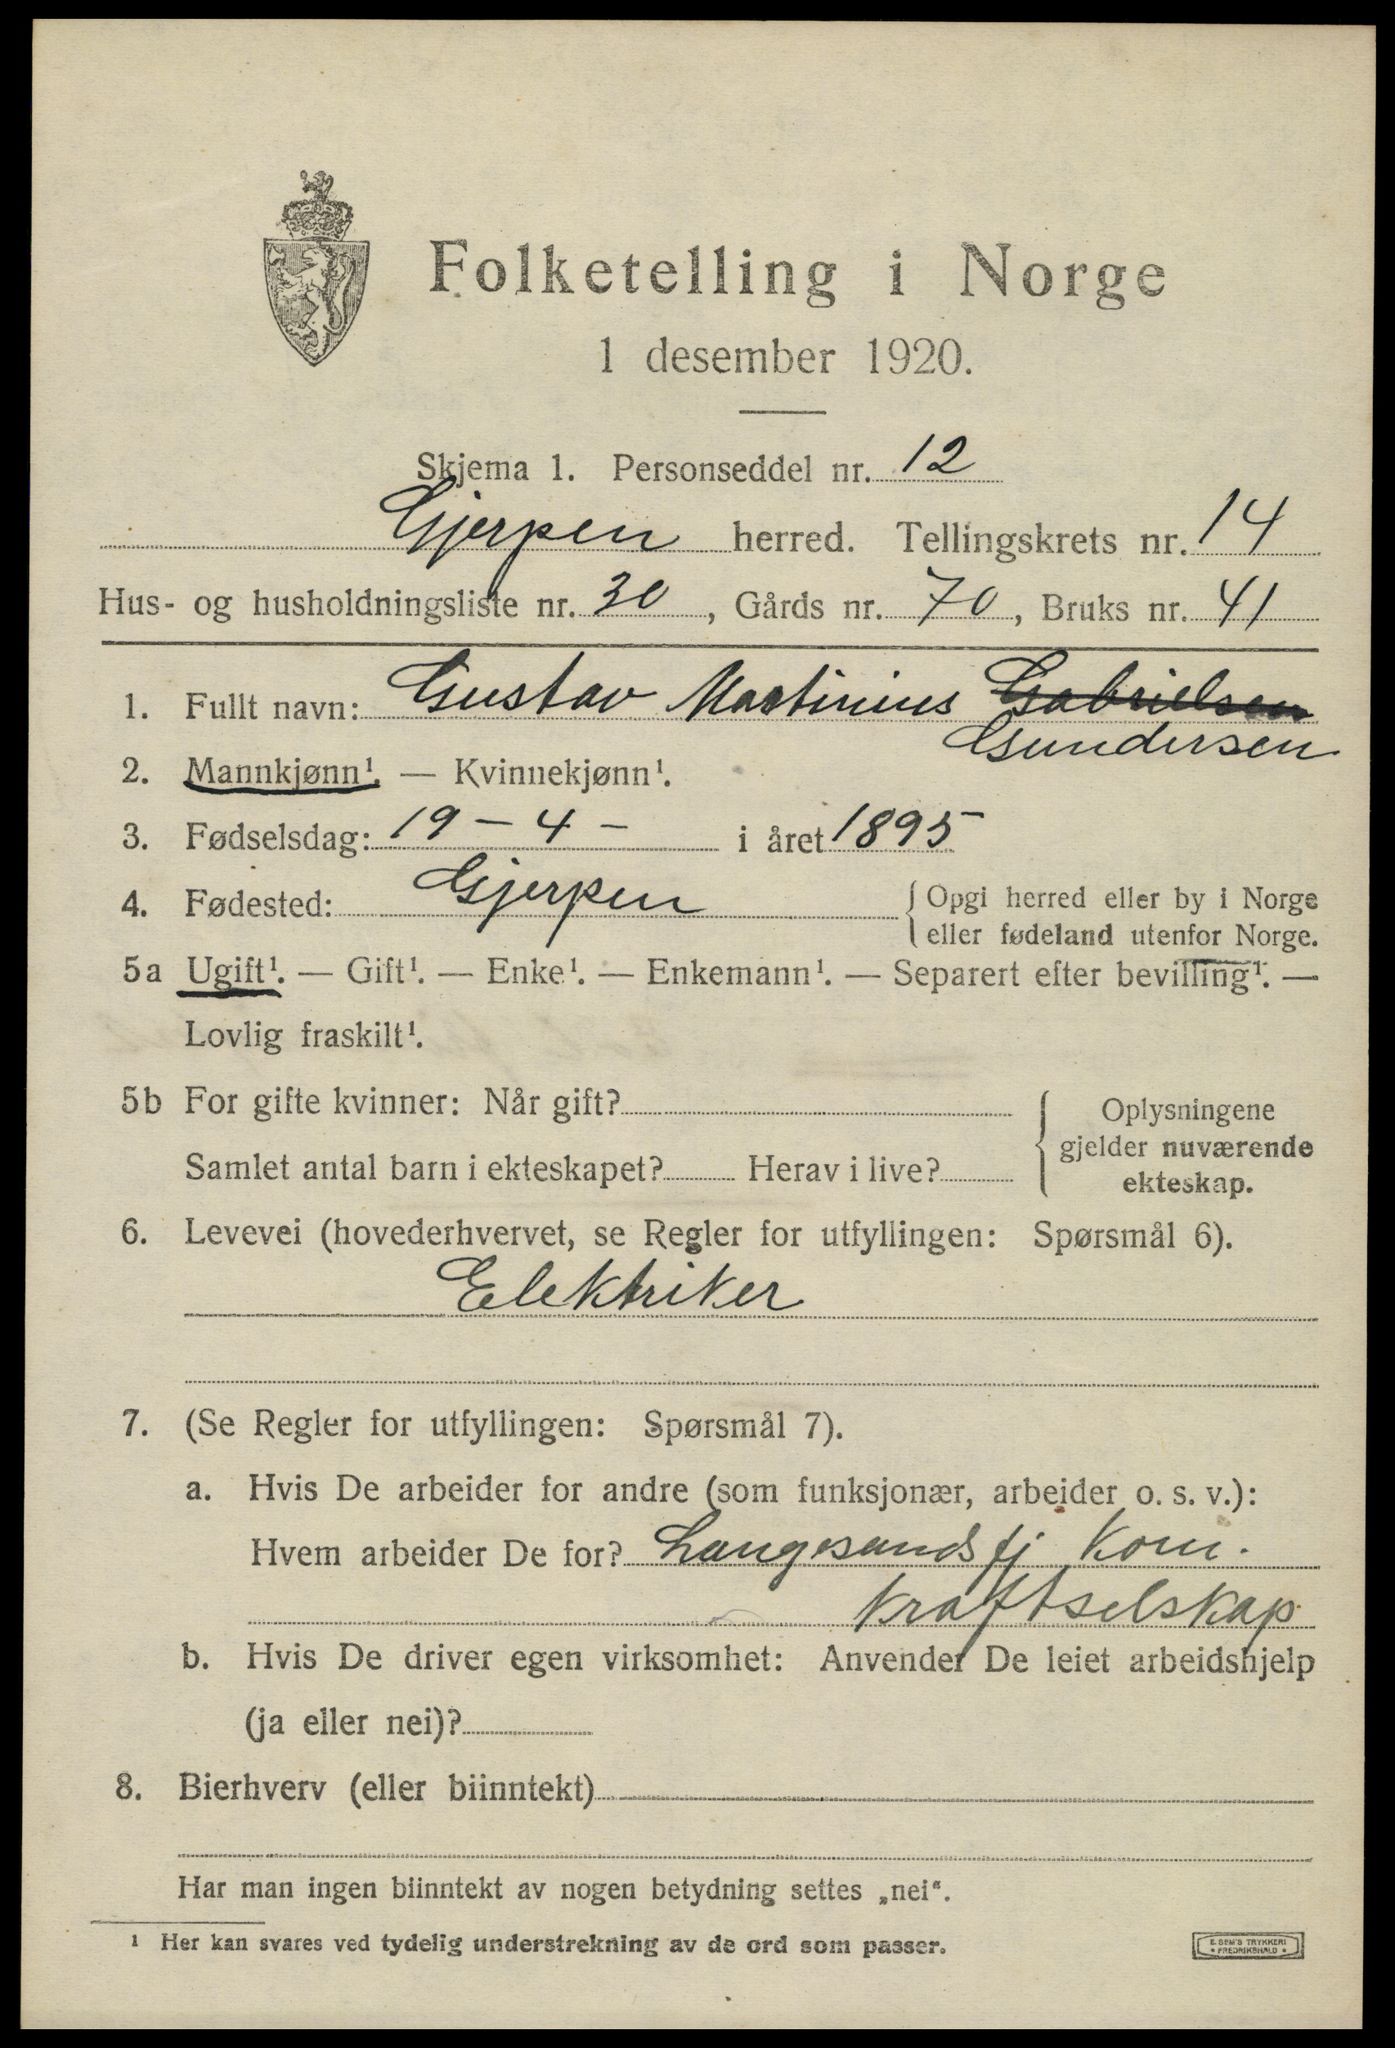 Folketelling i Norge
1 desember 1920.
Skjema 1. Personseddel nr. 12
Gjerpen herred. Tellingskrets nr. 14
Hus- og husholdningsliste nr. 30, Gårds nr. 70, Bruks nr. 41
1. Fullt navn: Gustav Martinius Gabrielsen
Gundersen
2. Mannkjønn¹. — Kvinnekjønn¹.
3. Fødselsdag: 19 - 4 - i året 1895
4. Fødested: Gjerpen { Opgi herred eller by i Norge
eller fødeland utenfor Norge.
5a Ugift¹. — Gift¹. — Enke¹. — Enkemann¹. — Separert efter bevilling¹. —
Lovlig fraskilt¹.
5b For gifte kvinner: Når gift?
Samlet antal barn i ekteskapet? Herav i live?
{ Oplysningene
gjelder nuværende
ekteskap.
6. Levevei (hovederhvervet, se Regler for utfyllingen: Spørsmål 6).
Elektriker
7. (Se Regler for utfyllingen: Spørsmål 7).
a. Hvis De arbeider for andre (som funksjonær, arbeider o. s. v.):
Hvem arbeider De for? Langesundsfj Kom.
Kraftselskap
b. Hvis De driver egen virksomhet: Anvender De leiet arbeidshjelp
(ja eller nei)?
8. Bierhverv (eller biinntekt)
Har man ingen biinntekt av nogen betydning settes „nei“.
¹ Her kan svares ved tydelig understrekning av de ord som passer.
E. SEM'S TRYKKERI
• FREDRIKSHALD •